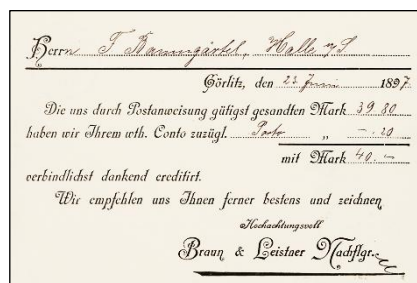 Herrn F. Baumgärtel, Halle a/S
Görlitz, den 23. Juni 1897.
Die uns durch Postanweisung gütigst gesandten Mark 39.80
haben wir Ihrem wth. Conto zuzügl. Porto „ —.20
mit Mark 40.—
verbindlichst dankend creditirt.
Wir empfehlen uns Ihnen ferner bestens und zeichnen
Hochachtungsvoll
Braun & Leistner Nachflgr.